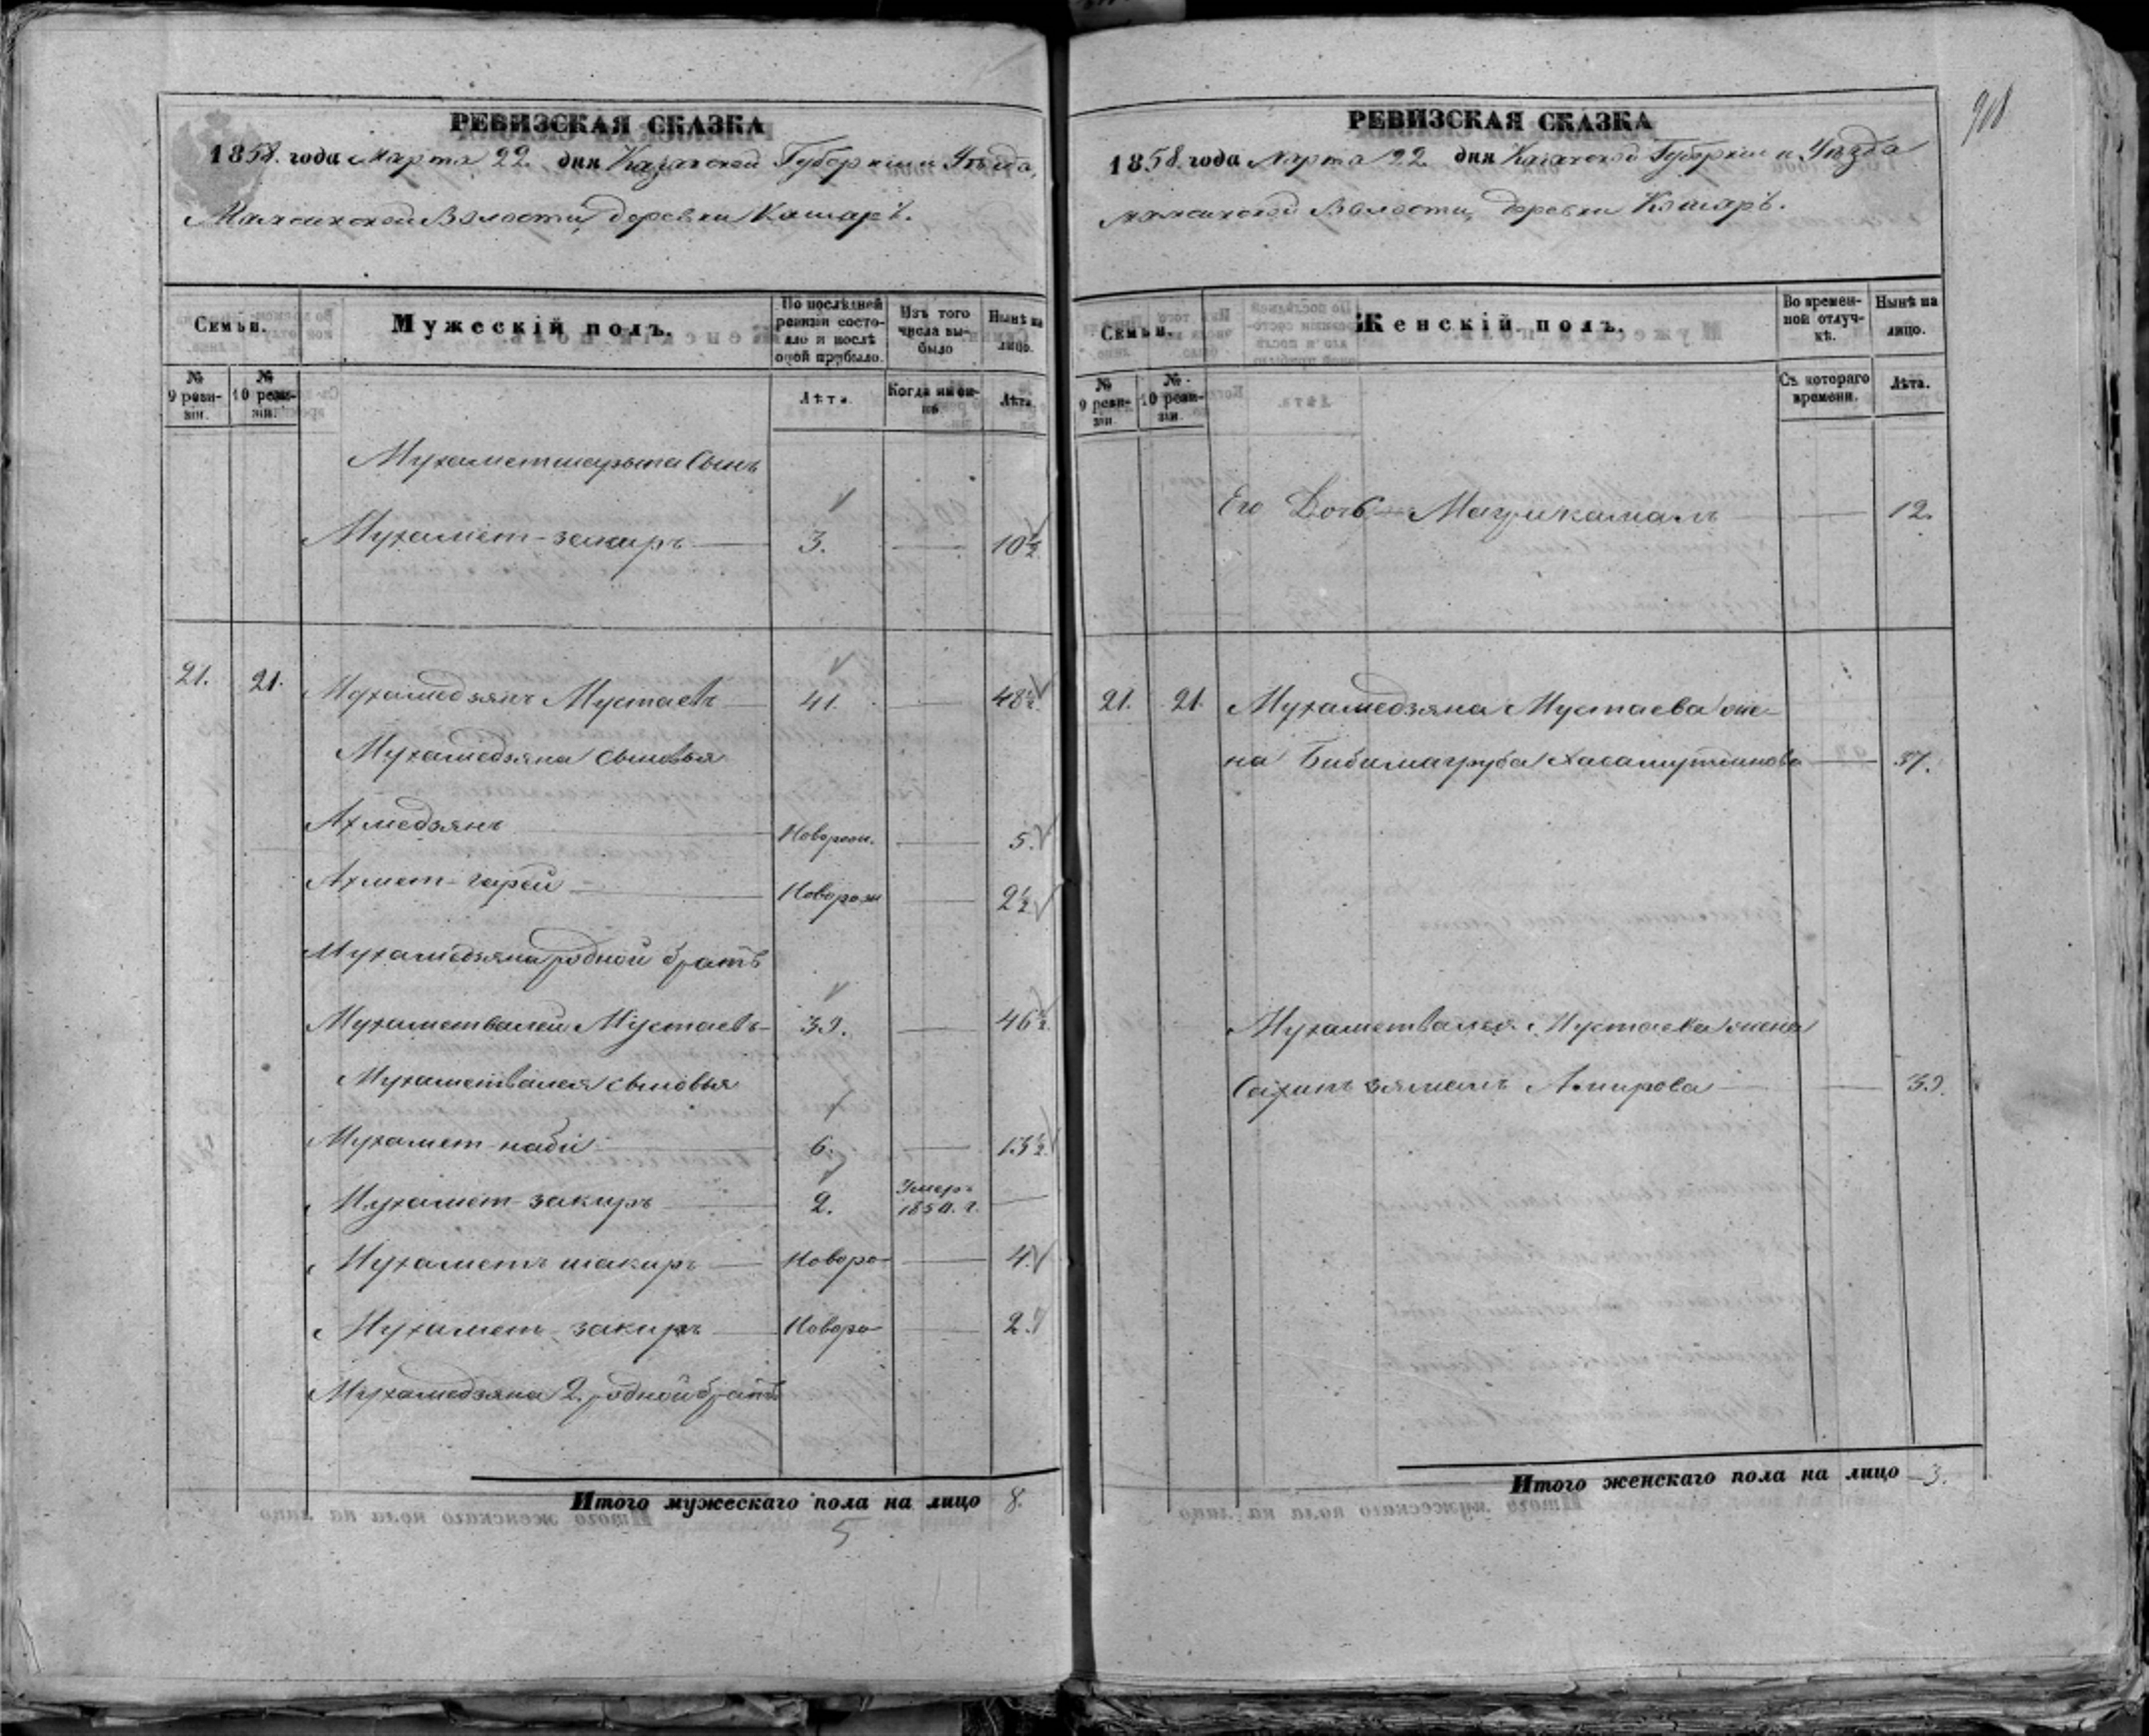 908
РЕВИЗСКАЯ СКАЗКА
1858. года Марта 22. дня Казанской Губерніи и Уѣзда,
Волости, деревни Кошаръ.
Семьи.
Мужескій полъ.
По послѣдней ревизіи состояло и послѣ оной прибыло.
Изъ того числа выбыло
Нынѣ на лицо.
№ 9 ревизіи.
№ 10 ревизіи.
Лѣта.
Когда именно.
Лѣта.
Мухаметшарыпа Сынъ
Мухамет-закиръ 3. 10½
21. 21. Мухамедзянъ Мустаевъ 41. 48½
Мухамедзяна сыновья
Ахмедзянъ Новорож. 5.
Ахмет-гарей Новорож 2½
Мухамедзяна родной братъ
Мухаметвалей Мустаевъ 39. 46½
Мухаметвалея сыновья
Мухамет-наби 6. 13½
Мухамет-закиръ 2. Умеръ 1850. г.
Мухаметъ шакиръ Новоро 4.
Мухамет-закиръ Новоро 2.
Мухамедзяна 2. родной братъ
Итого мужескаго пола на лицо 8.
5
РЕВИЗСКАЯ СКАЗКА
1858. года Марта 22. дня Казанской Губерніи и Уѣзда
Волости, деревни Кошаръ.
Семьи.
Женскій полъ.
Во временной отлучкѣ.
Нынѣ на лицо.
№ 9 ревизіи.
№ 10 ревизіи.
Съ котораго времени.
Лѣта.
Его Дочь Магзикамалъ 12.
21. 21. Мухамедзяна Мустаева же-
на Бибимагруба 37.
Мухаметвалея Мустаева жена
Амирова 39.
Итого женскаго пола на лицо 3.